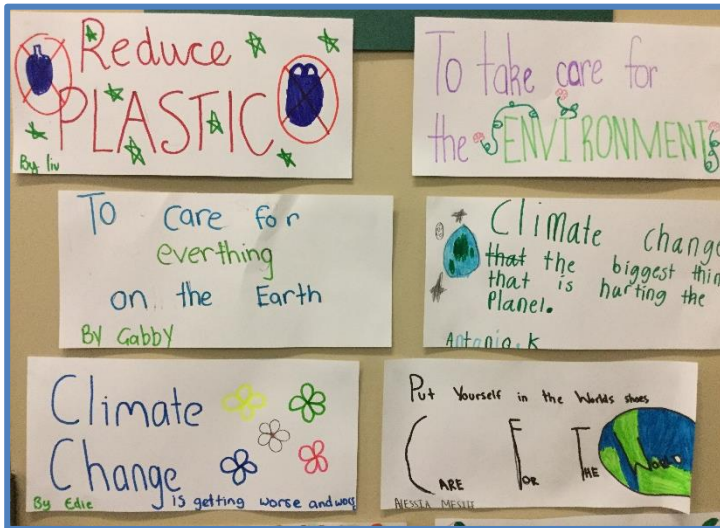 Reduce
PLASTIC
By liv
To take care for
the ENVIRONMENT
To care for
everthing
on the Earth
By Gabby
Climate change
that the biggest thin
that is hurting the
Planel.
Antonia.k
Climate
Change
is getting worse and wors
By Edie
Put Yourself in the Worlds shoes
CARE FOR THE WORLD
ALESSIA